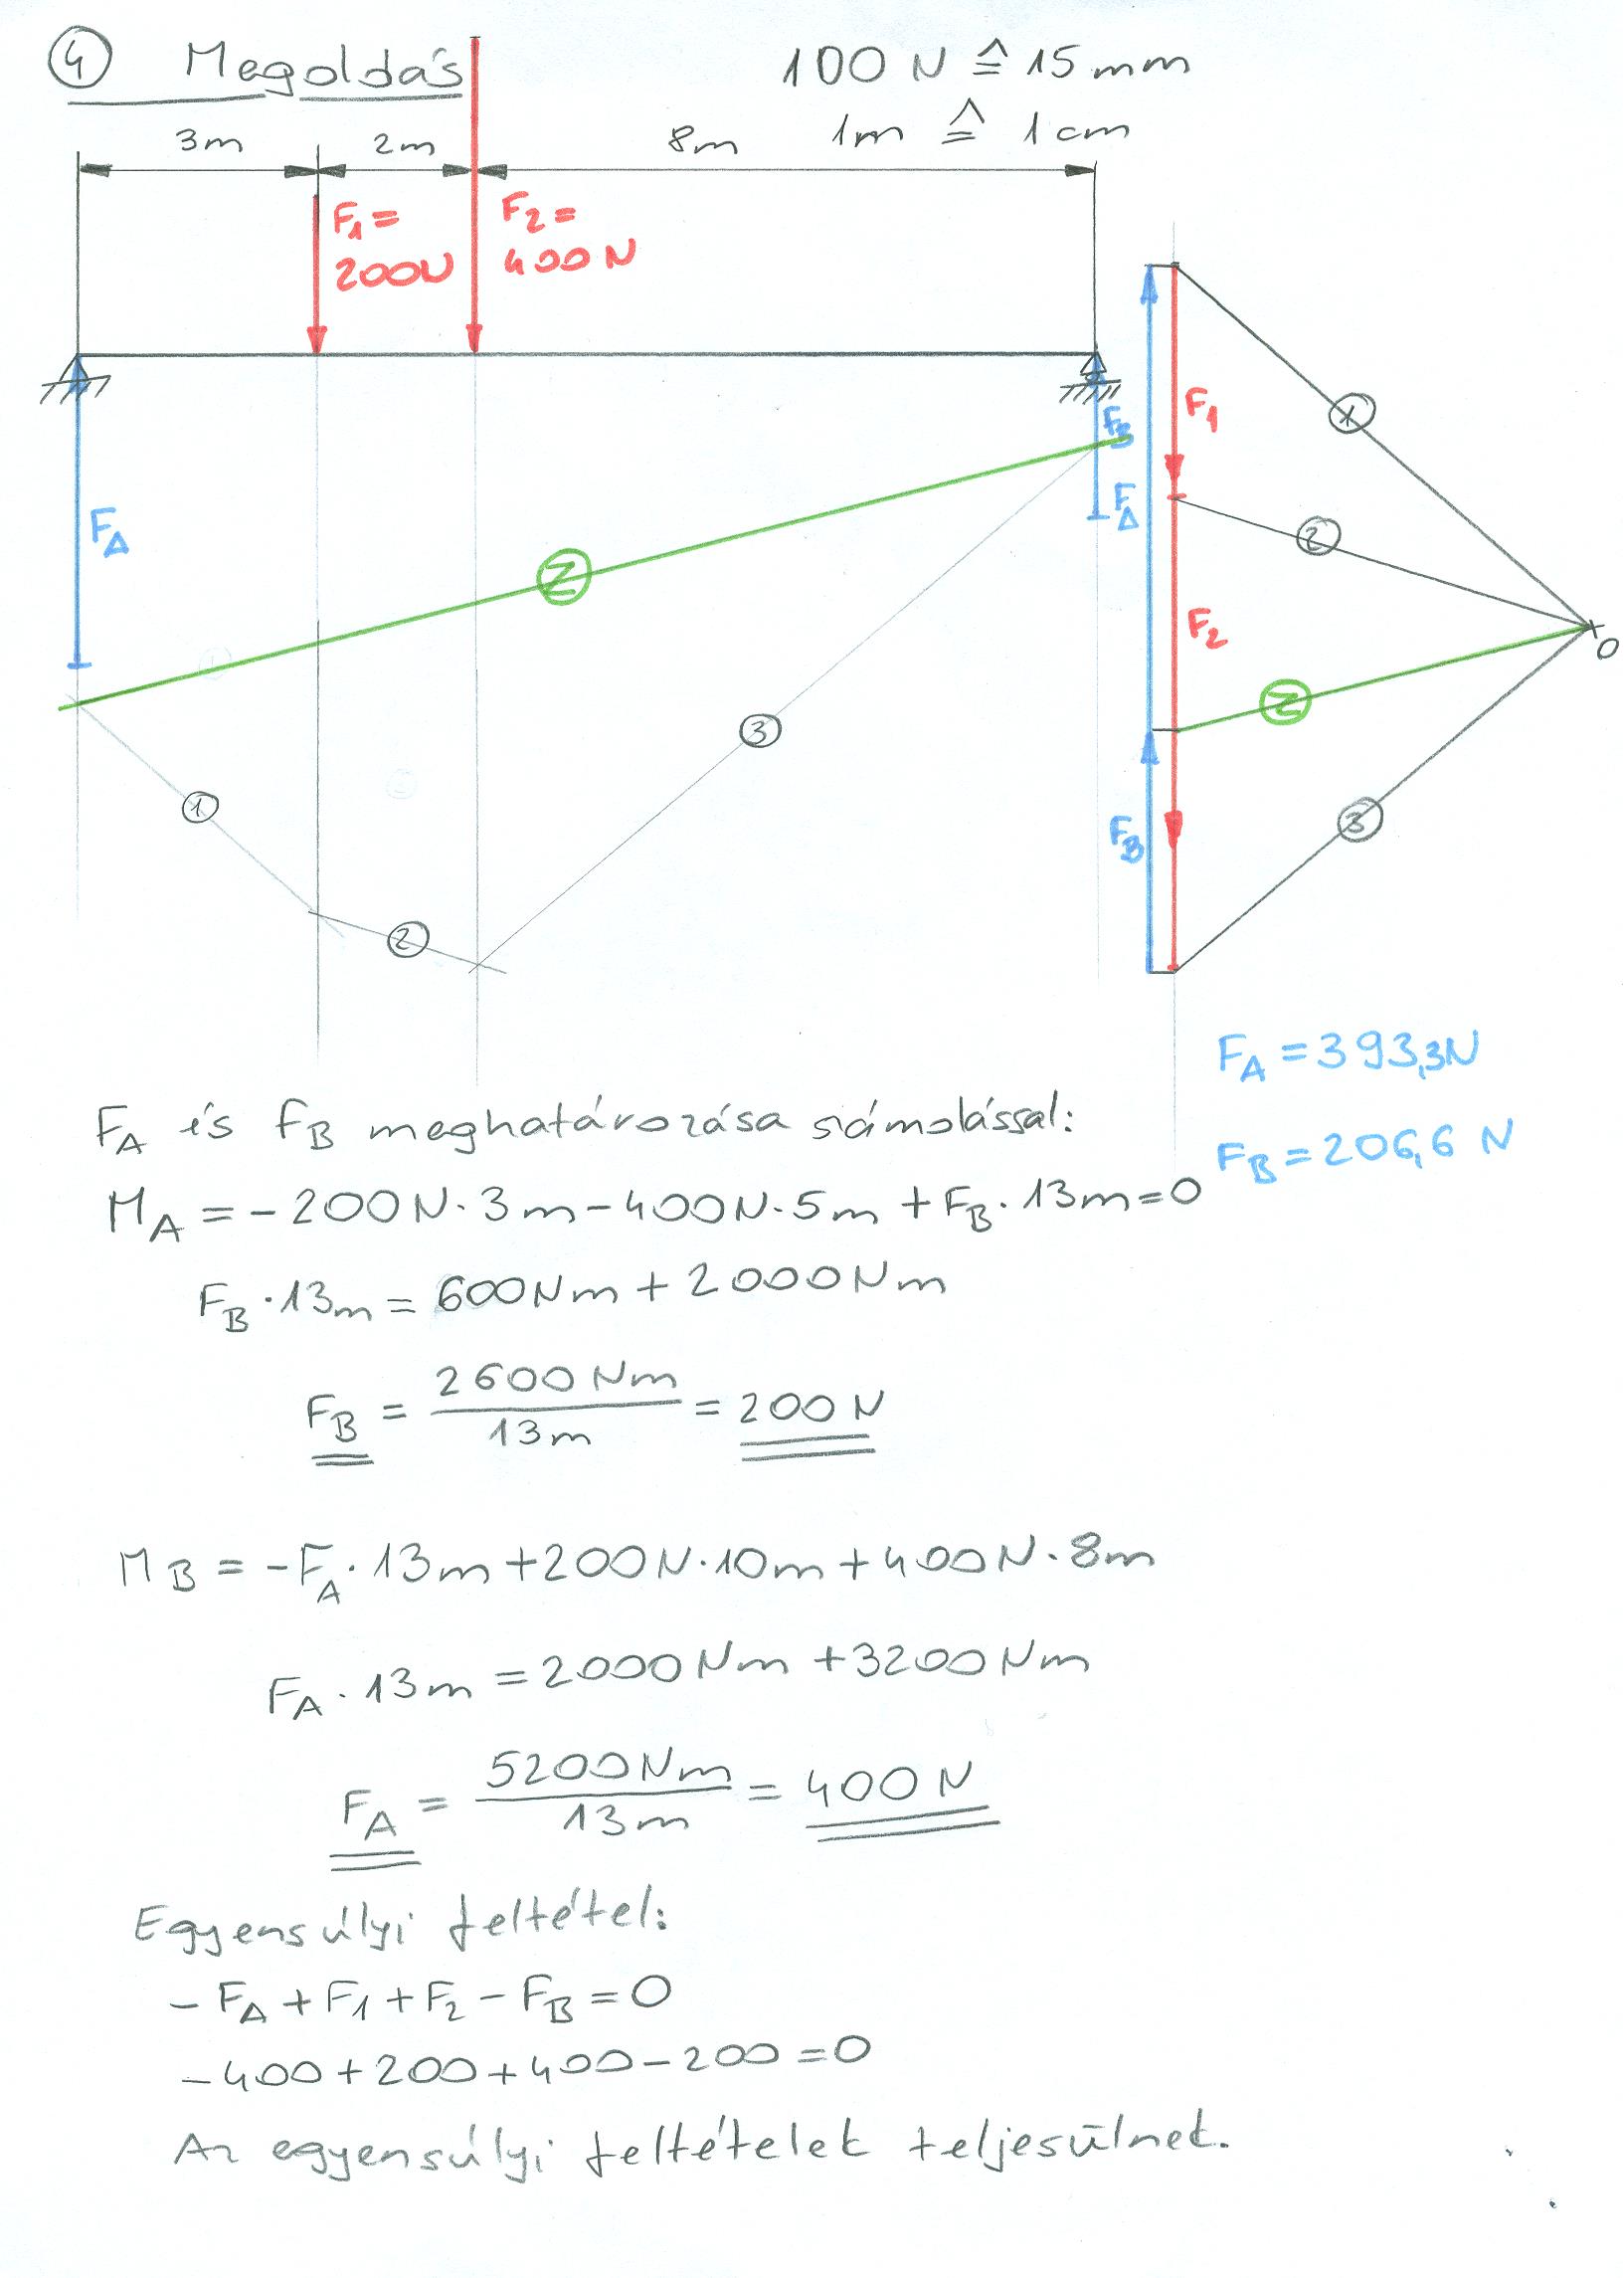 4 Megoldás
100 N ≙ 15 mm
1m ≙ 1 cm
3m 2m 8m
F₁ =
200N
F₂ =
400N
F_A
F_B
F_A
Z
1
2
3
F₁
F₂
F_B
1
2
Z
3
O
F_A = 393,3N
F_B = 206,6 N
F_A és F_B meghatározása számolással:
M_A = - 200N · 3m - 400N · 5m + F_B · 13m = 0
F_B · 13m = 600Nm + 2000Nm
F_B = 2600 Nm / 13m = 200 N
M_B = - F_A · 13m + 200N · 10m + 400N · 8m
F_A · 13m = 2000Nm + 3200Nm
F_A = 5200Nm / 13m = 400 N
Egyensúlyi feltétel:
- F_A + F₁ + F₂ - F_B = 0
- 400 + 200 + 400 - 200 = 0
Az egyensúlyi feltételek teljesülnek.